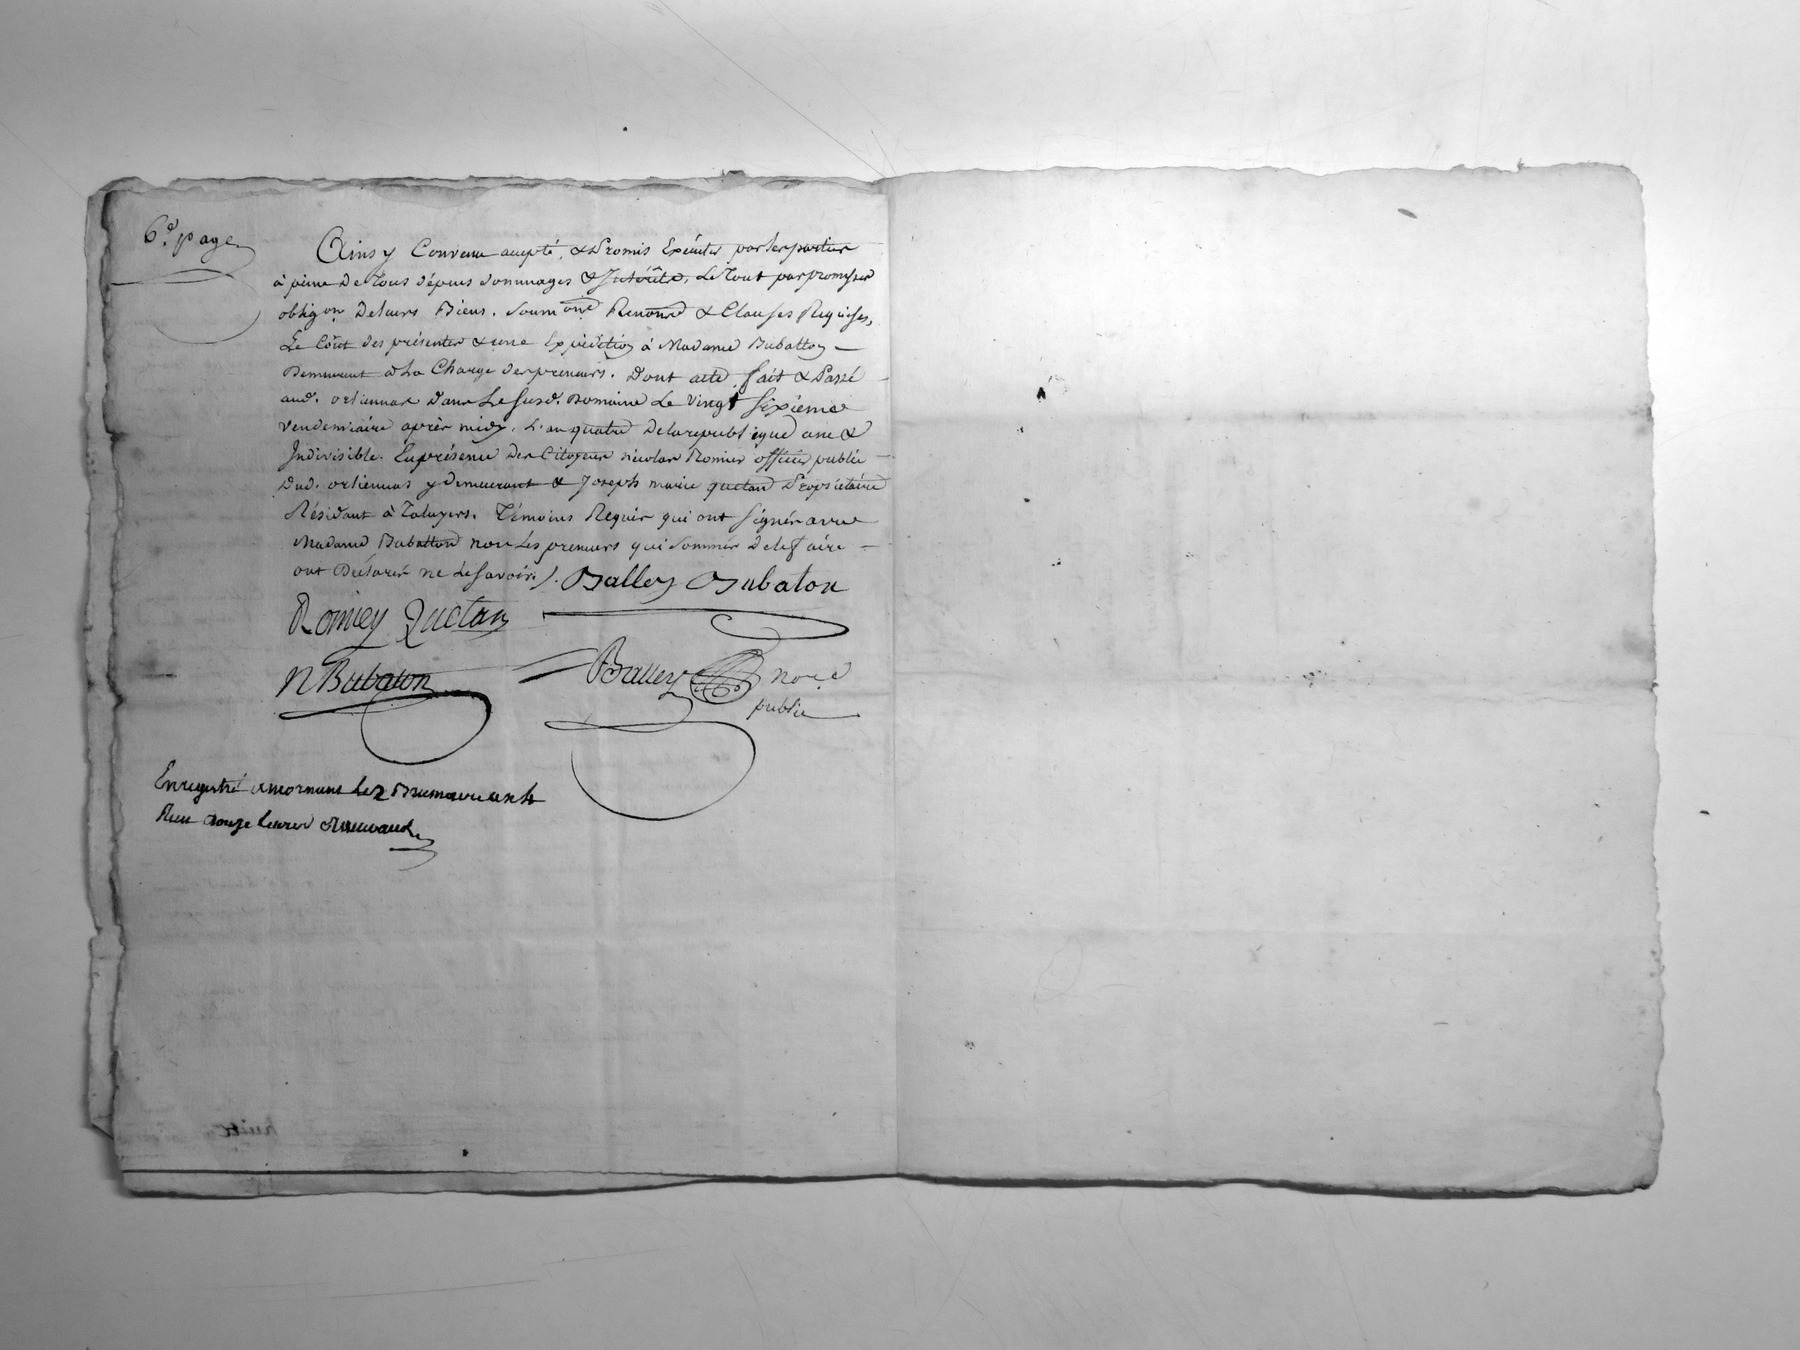 6.e page
Ainsy Convenu accepté, & Promis Exécuter par les parties
à peine De Tous dépens dommages & Intérêts, Le Tout par promesses
obligon De Leurs Biens. Soumons Renonns & Clauses Requises,
Le Coût des présentes & une Expédition à Madame Bubatton
Demeurent à La Charge des preneurs. Dont acte, fait & Passé
aud. orliennas dans Le susd. Domaine Le vingt sixieme
vendemiaire après midy. L'an quatre De la republique une &
Indivisible. En présence Des Citoyens nicolas Romier officier public
Dud. orliennas y demeurant & Joseph marie quetan Propriétaire
Résidant à Taluyers. Témoins Requis qui ont signés avec
Madame Bubatton non Les preneurs qui sommés De le faire
ont Déclarés ne Le savoir ). Balley Bubaton
Romiey Quetan
N Bubaton Balley nore
public
Enregistré a mornant le 2 Brumaire an 4
Reçu douze livres